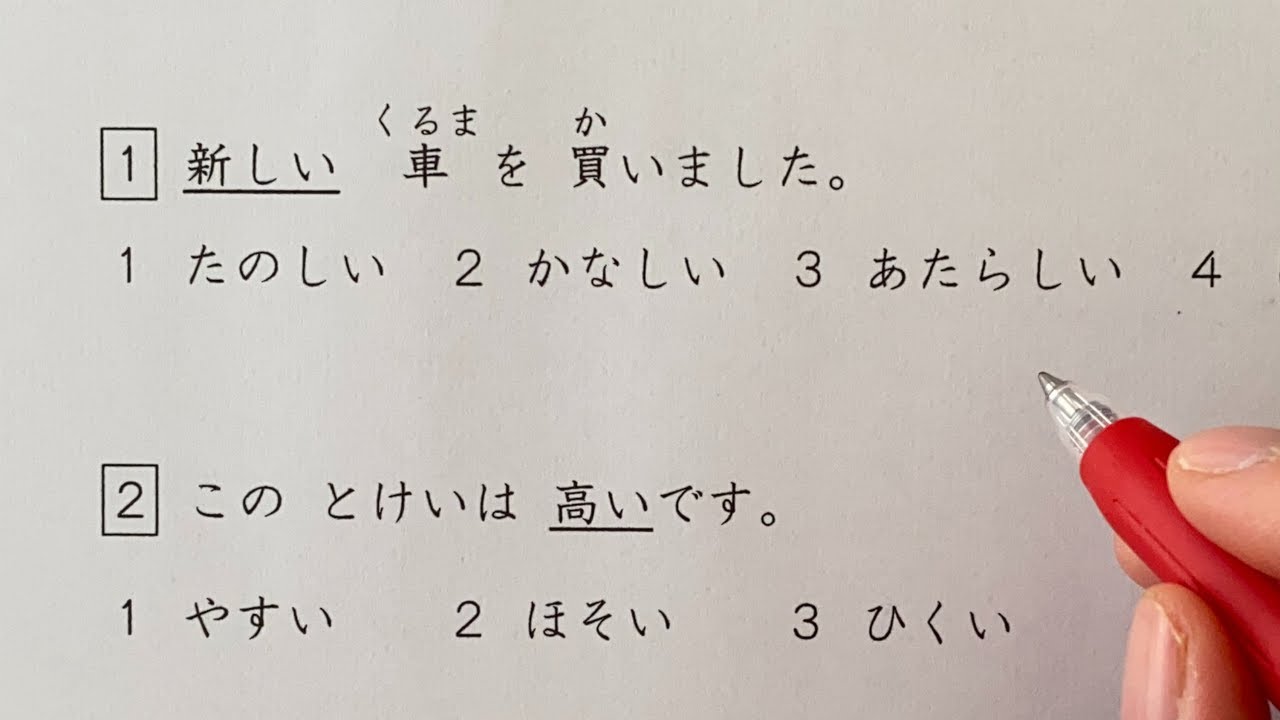 くるま か
1 新しい 車 を 買いました。
1 たのしい 2 かなしい 3 あたらしい 4
2 この とけいは 高いです。
1 やすい 2 ほそい 3 ひくい